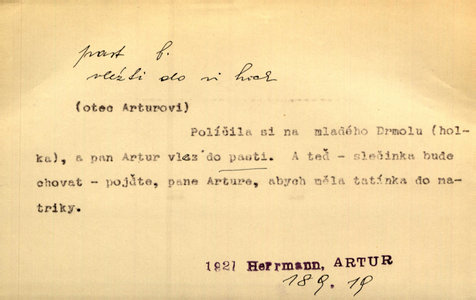 past f.
vlézti do ní hned
(otec Arturovi)
Políčila si na mladého Drmolu (hol-
ka), a pan Artur vlez do pasti. A teď - slečinka bude
chovat - pojďte, pane Arture, abych měla tatínka do ma-
triky.
1927 Herrmann, ARTUR
18 9. 19